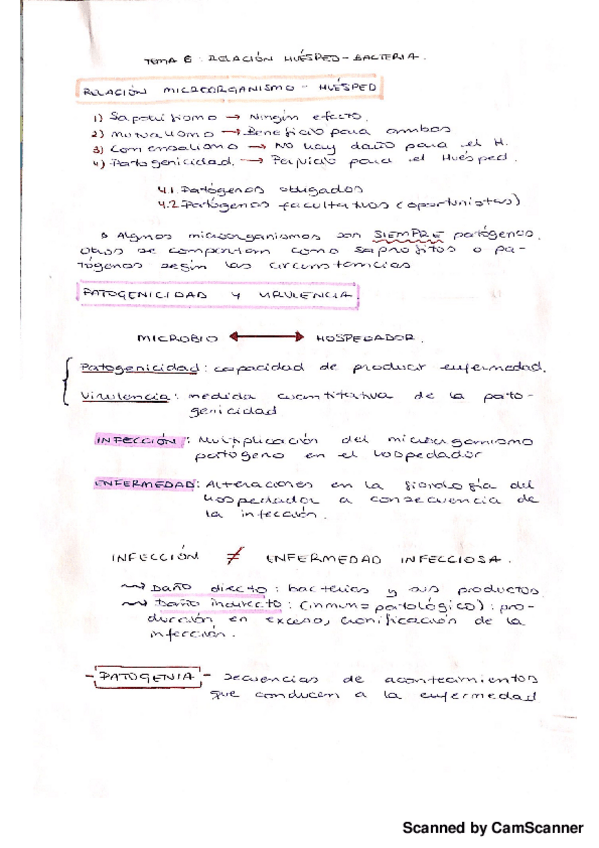 TEMA 6: RELACIÓN HUÉSPED-BACTERIA.
RELACIÓN MICROORGANISMO - HUÉSPED
1) Saprofitismo → Ningún efecto.
2) Mutualismo → Beneficio para ambos
3) Comensalismo → No hay daño para el H.
4) Patogenicidad. → Perjuicio para el Huésped.
4.1. Patógenos obligados
4.2. Patógenos facultativos (oportunistas)
Algunos microorganismos son SIEMPRE patógenos.
Otros se comportan como saprófitos o pa-
tógenos según las circunstancias
PATOGENICIDAD Y VIRULENCIA
MICROBIO ↔ HOSPEDADOR.
Patogenicidad: capacidad de producir enfermedad.
Virulencia: medida cuantitativa de la pato-
genicidad
INFECCIÓN: Multiplicación del microorganismo
patógeno en el hospedador
ENFERMEDAD: Alteraciones en la fisiología del
hospedador a consecuencia de
la infección.
INFECCIÓN ≠ ENFERMEDAD INFECCIOSA.
Daño directo: bacterias y sus productos.
Daño indirecto: (inmunopatológico): pro-
ducción en exceso, cronificación de la
infección.
- PATOGENIA - secuencias de acontecimientos
que conducen a la enfermedad
Scanned by CamScanner